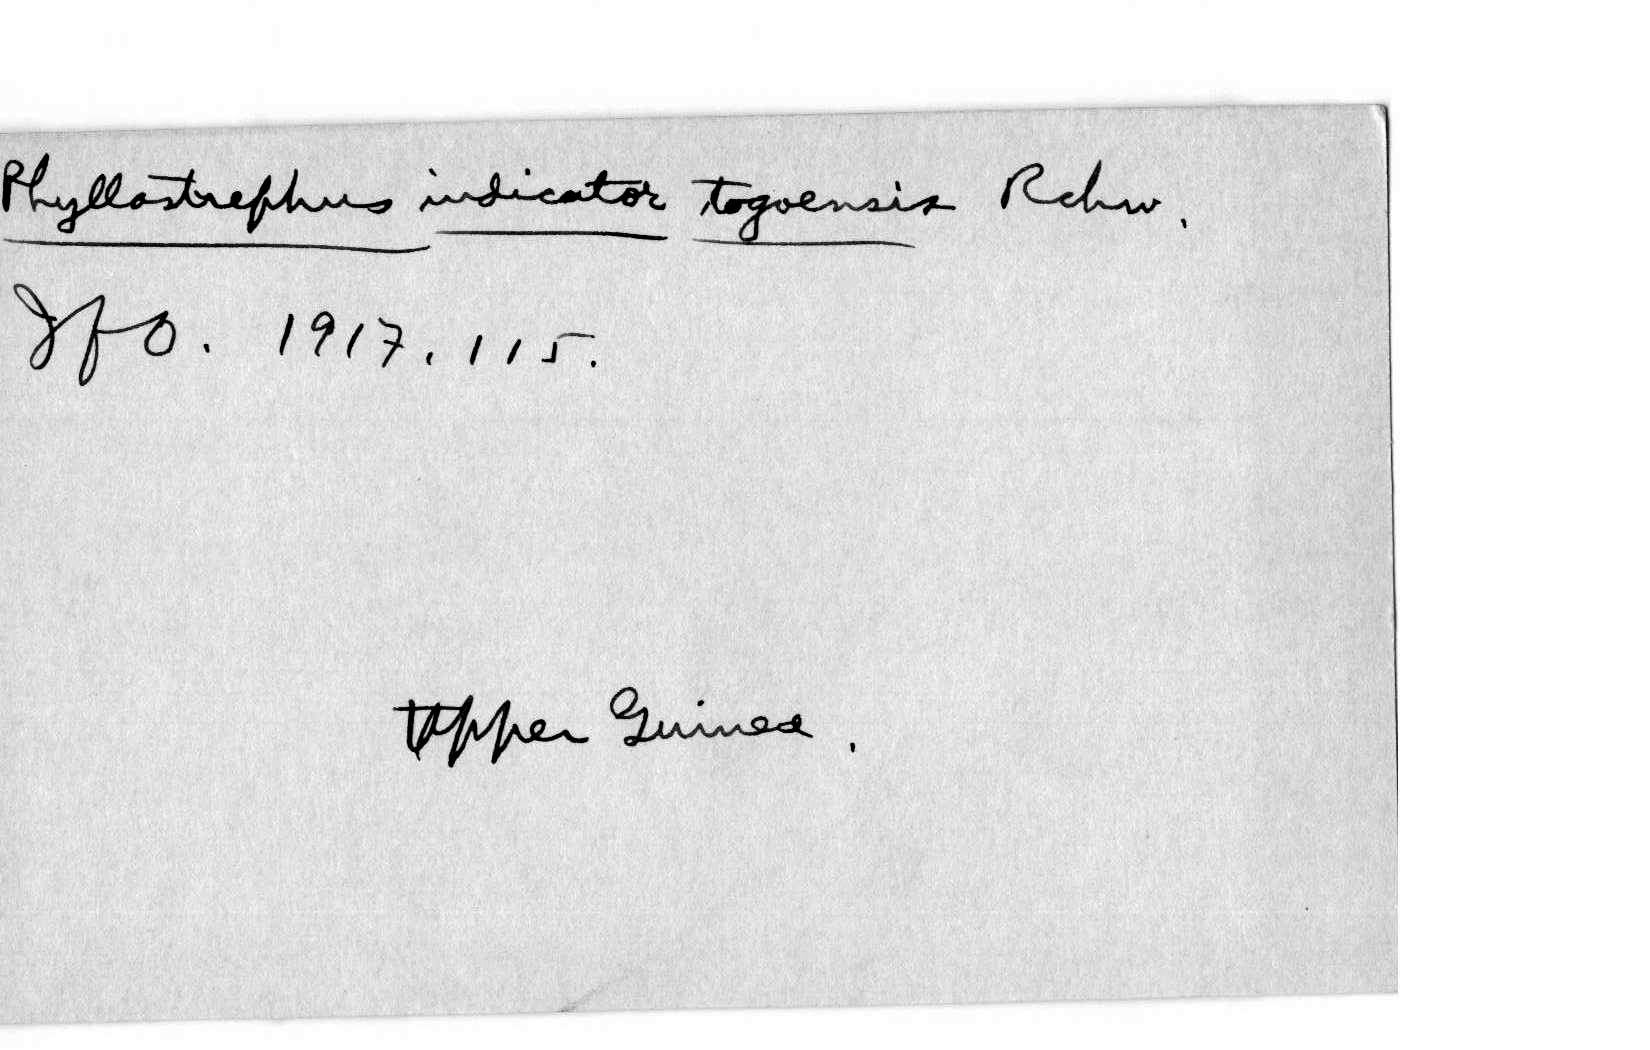 Phyllastrephus indicator togoensis Rchw.
JfO. 1917. 115.
Upper Guinea.